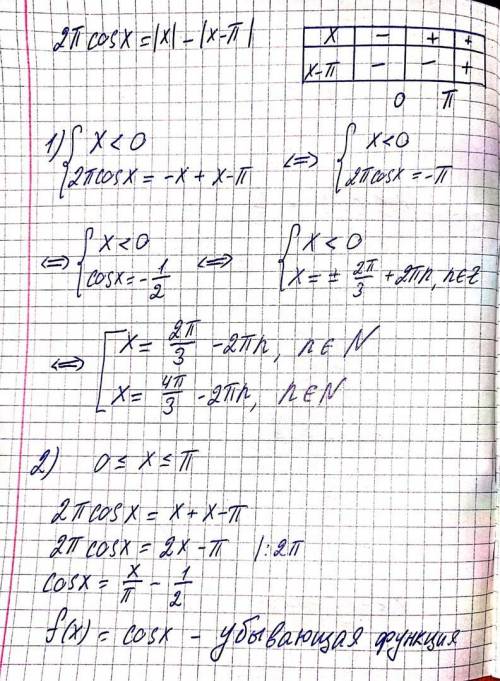 2π cos x = |x| - |x-π|
x − + +
x-π − − +
0 π
1) { x < 0 ; 2π cos x = -x + x - π <=> { x < 0 ; 2π cos x = -π
<=> { x < 0 ; cos x = -1/2 <=> { x < 0 ; x = ± 2π/3 + 2πn, n ∈ Z
<=> [ x = 2π/3 - 2πn, n ∈ N
x = 4π/3 - 2πn, n ∈ N
2) 0 ≤ x ≤ π
2π cos x = x + x - π
2π cos x = 2x - π |: 2π
cos x = x/π - 1/2
f(x) = cos x - убывающая функция